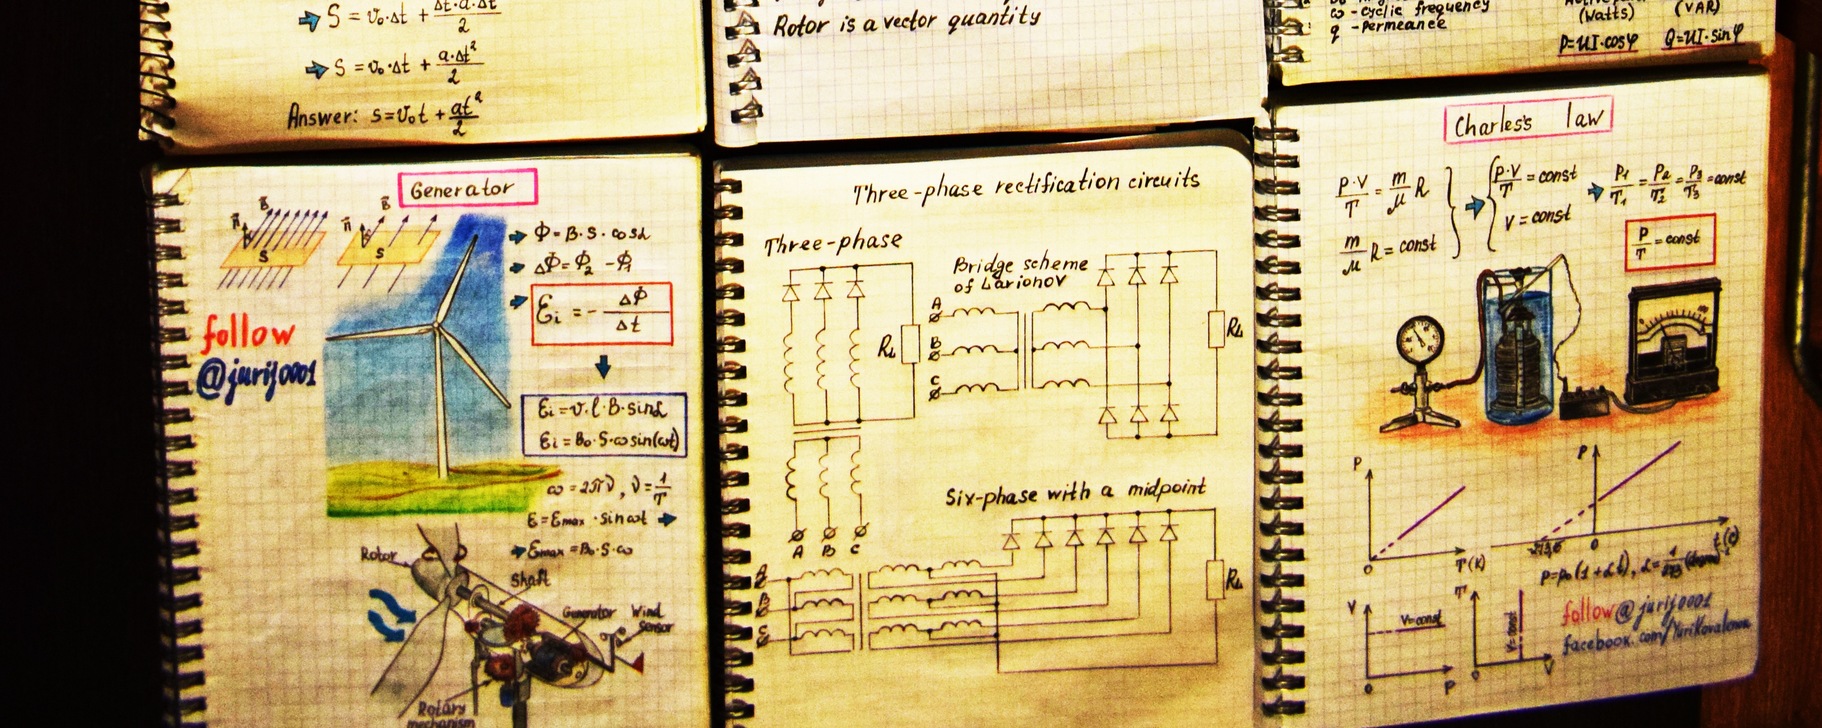 S = v₀·Δt + Δt·a·Δt/2
S = v₀·Δt + a·Δt²/2
Answer: s=v₀t + at²/2
Rotor is a vector quantity
ω - cyclic frequency
g - permeance
(Watts) (VAR)
P=UI·cosφ Q=UI·sinφ
Generator
B B
n n
S S
Φ = B·S·cosα
ΔΦ = Φ₂ - Φ₁
Ɛi = - ΔΦ/Δt
follow
@jurij0001
Ɛi = v·l·B·sinα
Ɛi = B₀·S·ω sin(ωt)
ω = 2πν, ν = 1/T
Ɛ = Ɛmax · sin ωt
Ɛmax = B₀·S·ω
Rotor
Shaft
Generator
Wind
Sensor
Rotary
mechanism
Three-phase rectification circuits
Three-phase
RL
A B C
Bridge scheme
of Larionov
A
B
C
RL
Six-phase with a midpoint
A
B
C
RL
Charles's law
P·V/T = m/μ R
m/μ R = const
P·V/T = const
V = const
P₁/T₁ = P₂/T₂ = P₃/T₃ = const
P/T = const
P
0
T(K)
P
0
t(c)
P=P₀(1+αt),
V
V=const
0
P
T
V=const
0
V
follow @jurij0001
facebook.com/YuriKovalenok